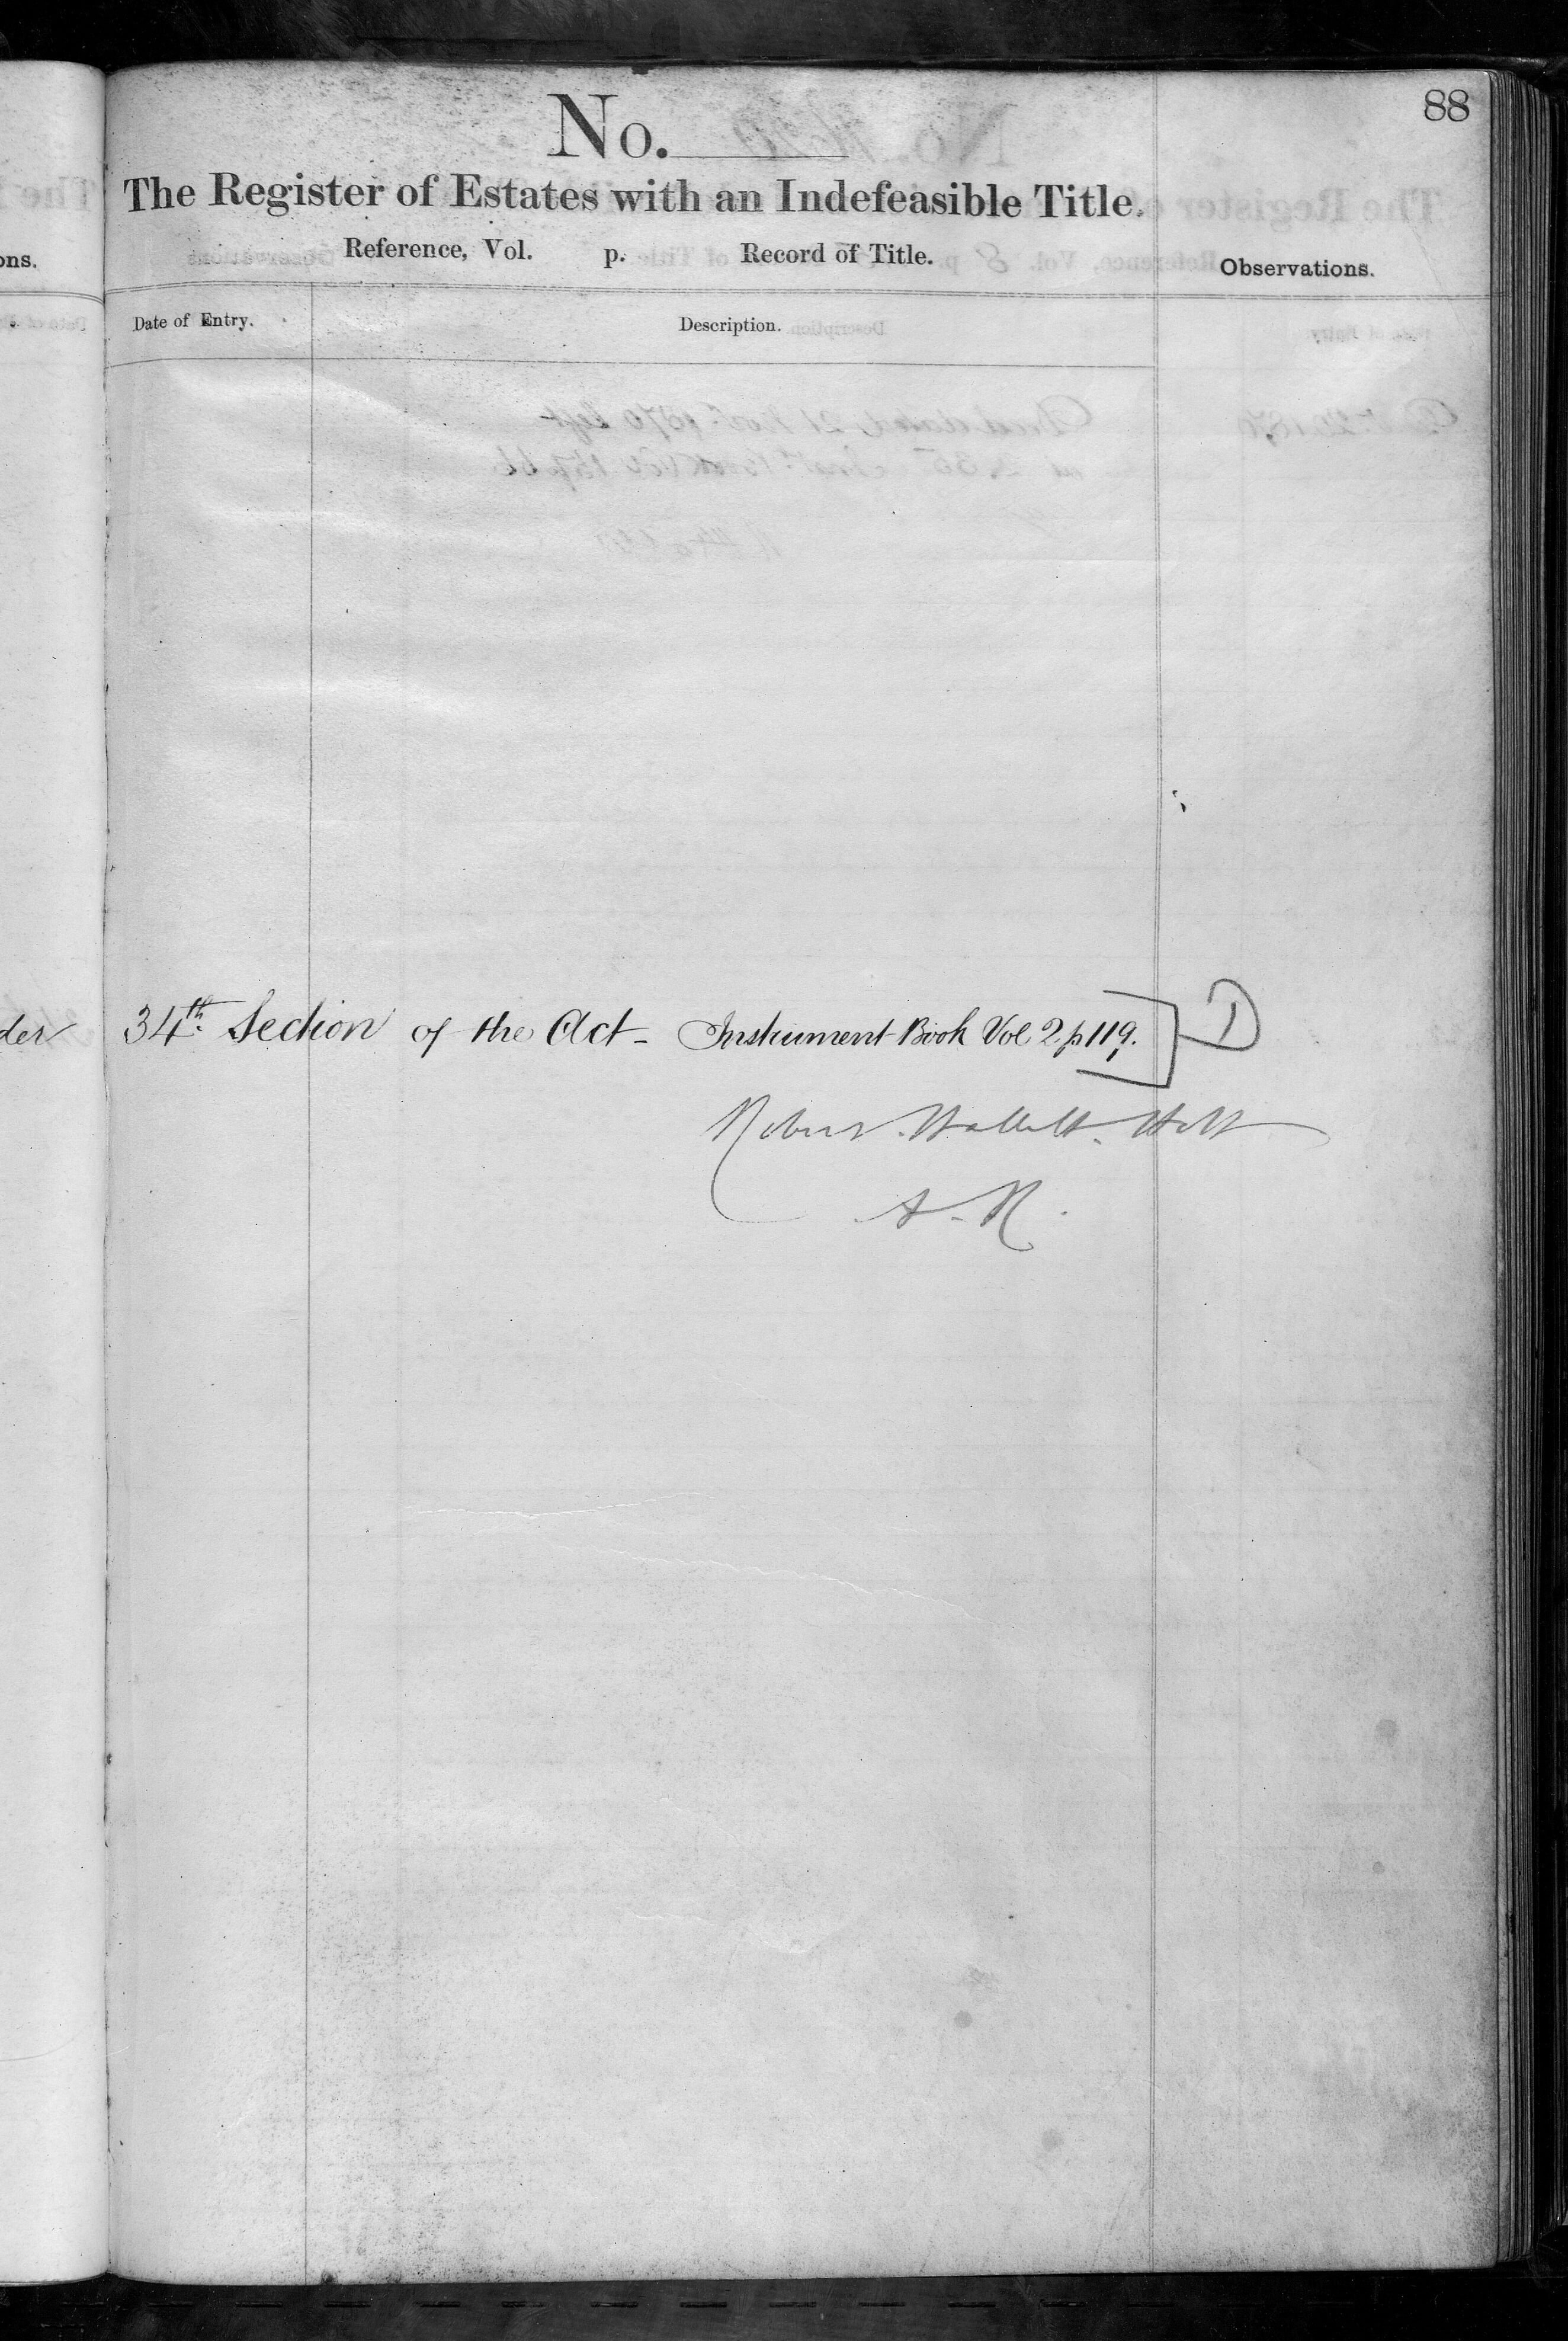 88
No.
The Register of Estates with an Indefeasible Title.
Reference, Vol. p. Record of Title.
ons.
Observations.
Date of Entry.
Description.
der 34th. Section of the Act - Instrument Book Vol 2 p 119. ] D
Robert Hallett Holt
A. R.